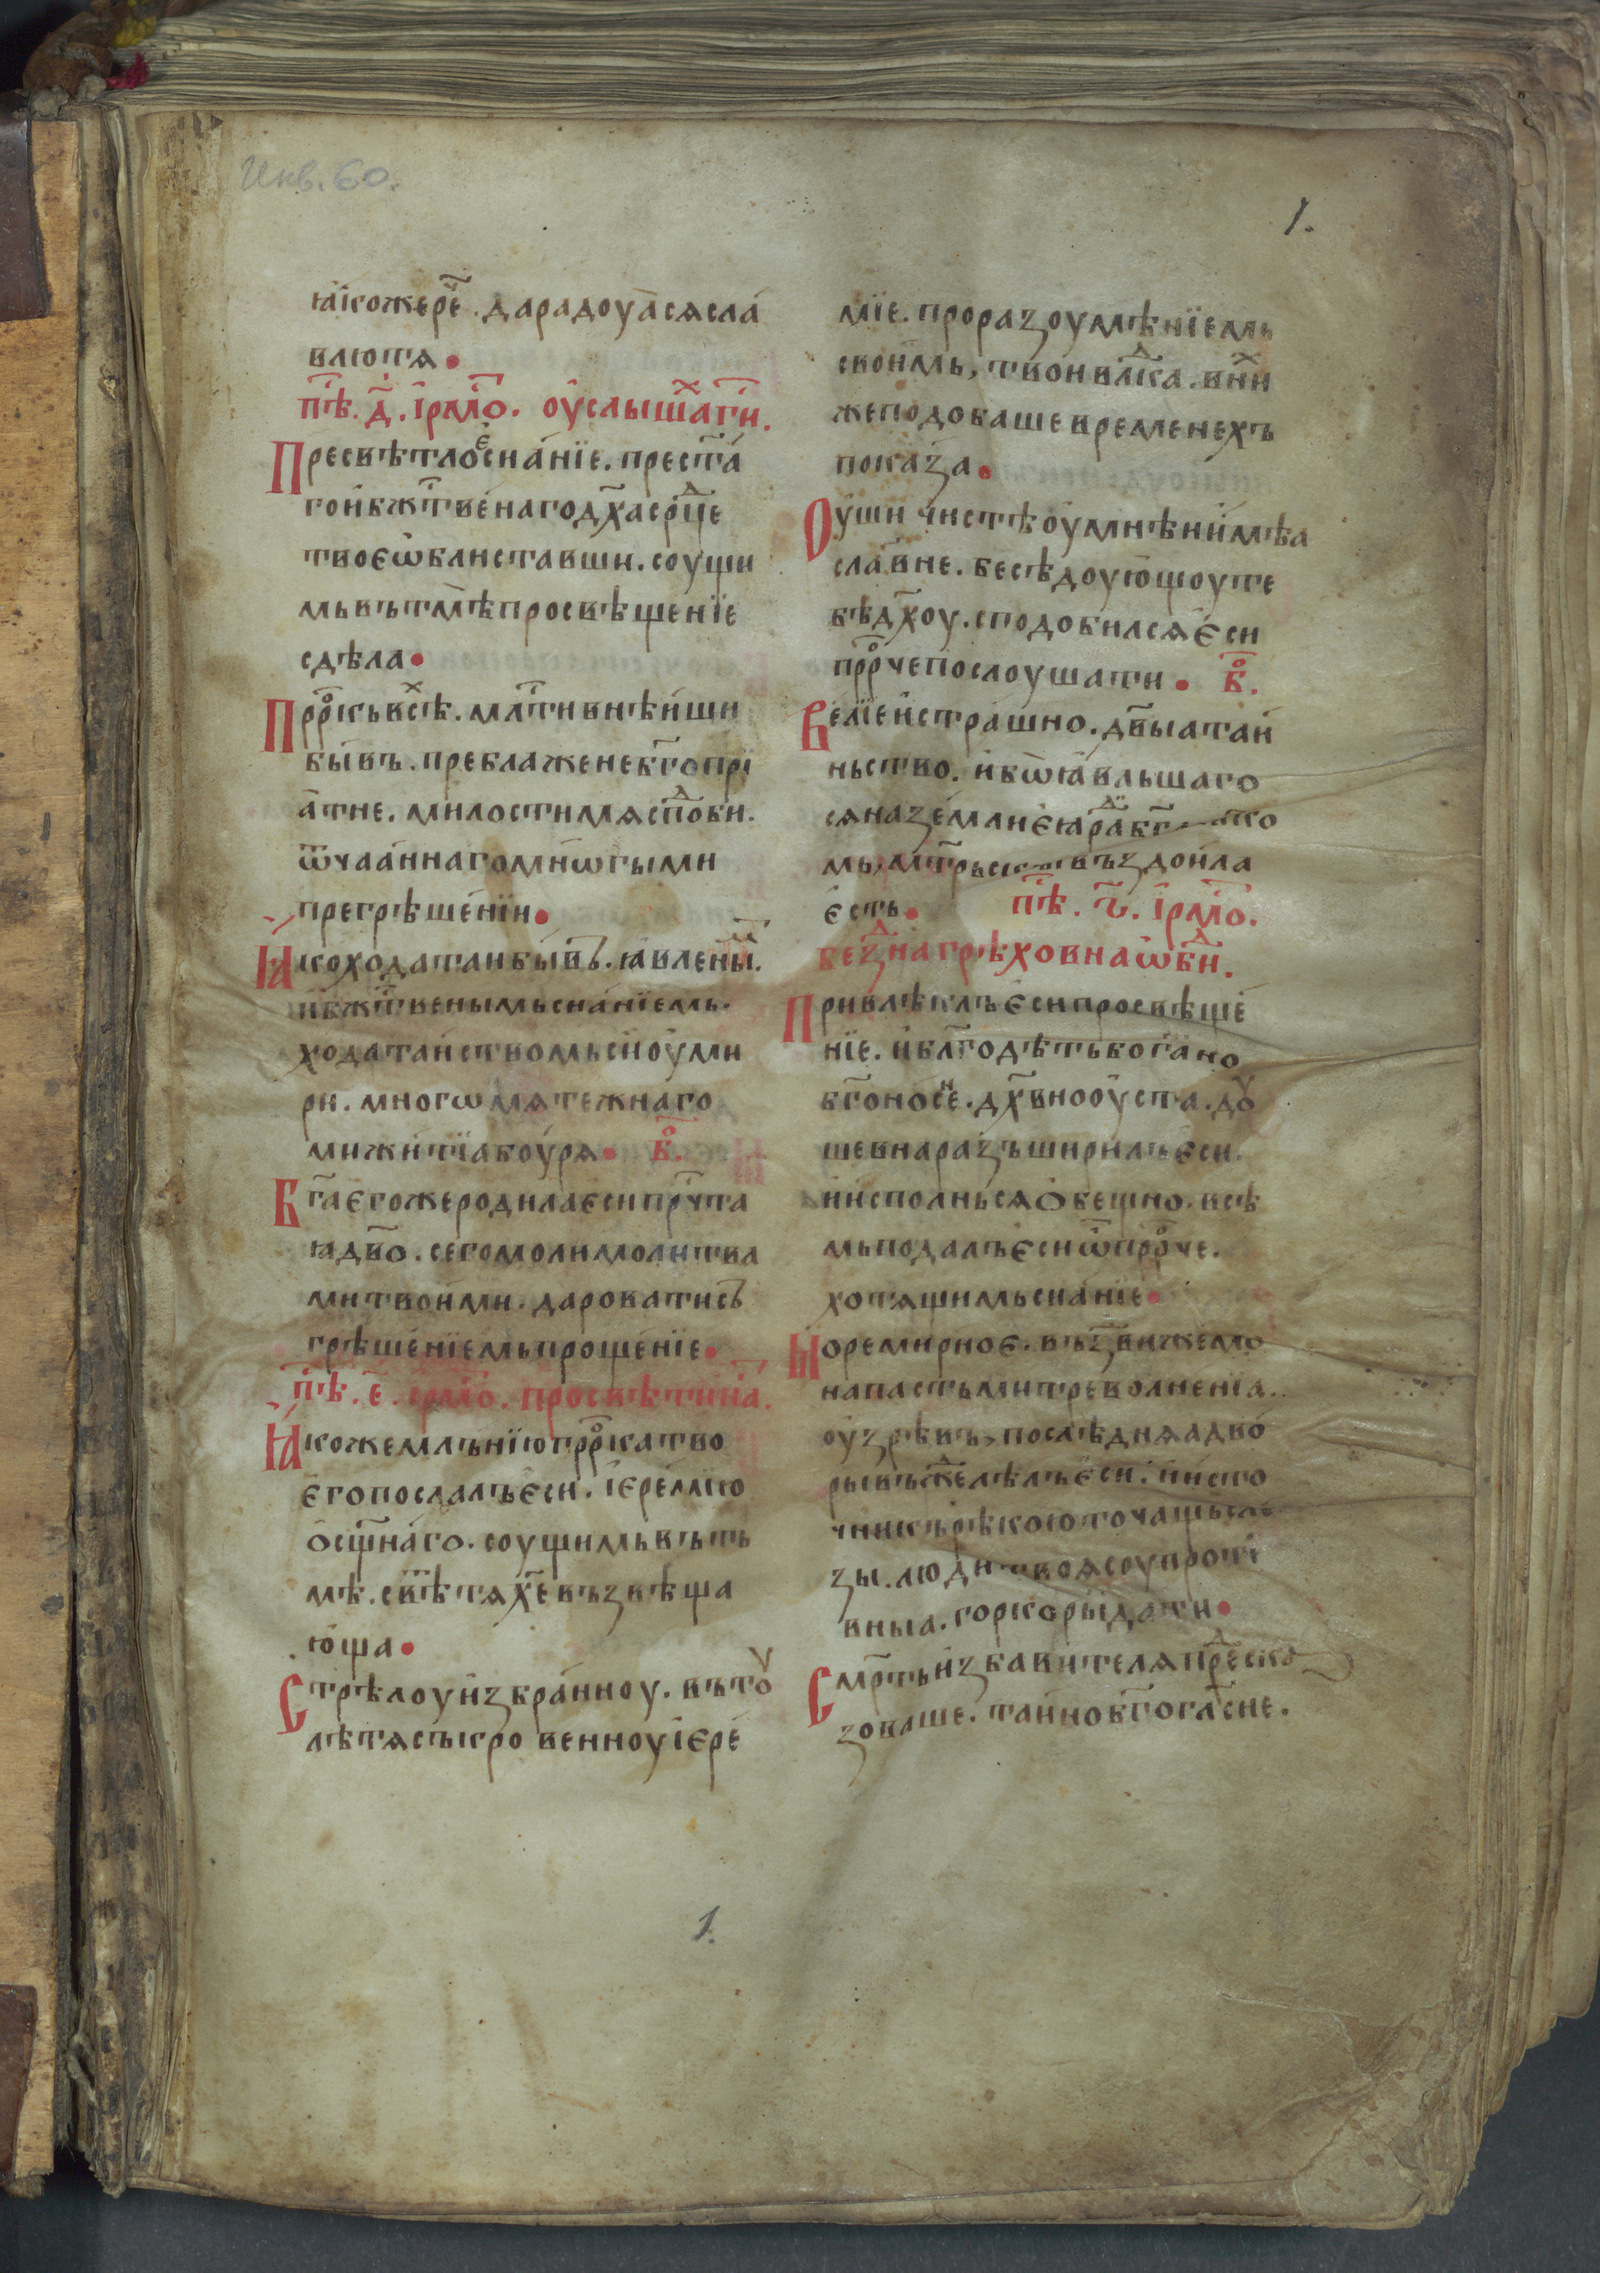 Инв. 60.
1.
ꙗкожерⷱ҇е . дарадоуꙗсѧсла
влютѧ
пⷭ҇ѣ . д҃ . ірмⷭ҇о . оуслышаⷯг҃и .
Пресвѣтлоеснанїе . престⷭ҇а
гоибжⷭ҇твенагодх҃асерⷣце
твоеѡблиставши . соущи
мьвътмѣпросвѣщенїе
сдѣла
Прⷪ҇ркъвсⷯѣ . млⷭ҇тивнѣиши
бывъ . преблаженебг҃опрї
атне . милостимѧспⷣоби .
ѿчааннагомнѡгыми
прегрѣшенїи
Ꙗкоходатаибывъ . ꙗвленⷨы .
ибжⷭ҇твенымьсианїемь .
ходатаиствомьсиоуми
ри . многѡмѧтежнаго
мижитїабоурѧ бⷪ҇ .
Бг҃аегожеродилаесипрчⷭ҇та
ꙗдв҃о . сегомолимолитва
митвоими . дароватисъ
грѣшенїемьпрощенїе
пⷭ҇ѣ . е҃ . ірмⷭ҇о . просвѣтинⷭ҇а .
Ꙗкожемлънїюпрⷪ҇ркатво
егопослалъеси . іеремїю
ѻсщ҃наго . соущимьвъть
мѣ . свⷭ҇ѣтѧхе҃възвѣща
юща
Стрѣлоуизбранноу . вътоу
лѣтѧсъкровенноуіере
мїе . проразоумѣнїемь
своимь , твоивлⷣка . вниⷯ
жеподобашевременехъ
показа
Оушичистѣоумнѣнимѣа
славне . бесѣдоующоуте
бѣдх҃оу . сподобилсѧеси
прⷪ҇рчепослоушати бⷪ҇ .
Велїеистрашно . дв҃ыатаи
ньство . ибѡꙗвльшаго
сѧназемли
мь , въздоила
есть пⷭ҇ѣ . ѕ҃ . ірмⷭ҇о .
безⷣнагрѣховнаѡбⷣи .
Привлѣклъесипросвѣще
нїе . иблг҃одѣтьбогано
бг҃оносне . дх҃внооуста . доу
шевнаразъширилъеси .
ииспольнсѧѻбещно . всѣ
мьподалъесиѿпрⷪ҇рче .
хотѧщимьсианїе
Моремирное . възⷣвижемо
напастьмитреволненїа .
оузрѣвъ , послѣднѧадво
рывъжⷣелѣлъеси . иисто
чникърѣкоюточащь
зы . люди твоѧсоупроти
вныа . горкорыдати
Смрⷭ҇тьизбавителѧпреⷣска
зоваше . таинобг҃оглаⷭ҇сне .
1.